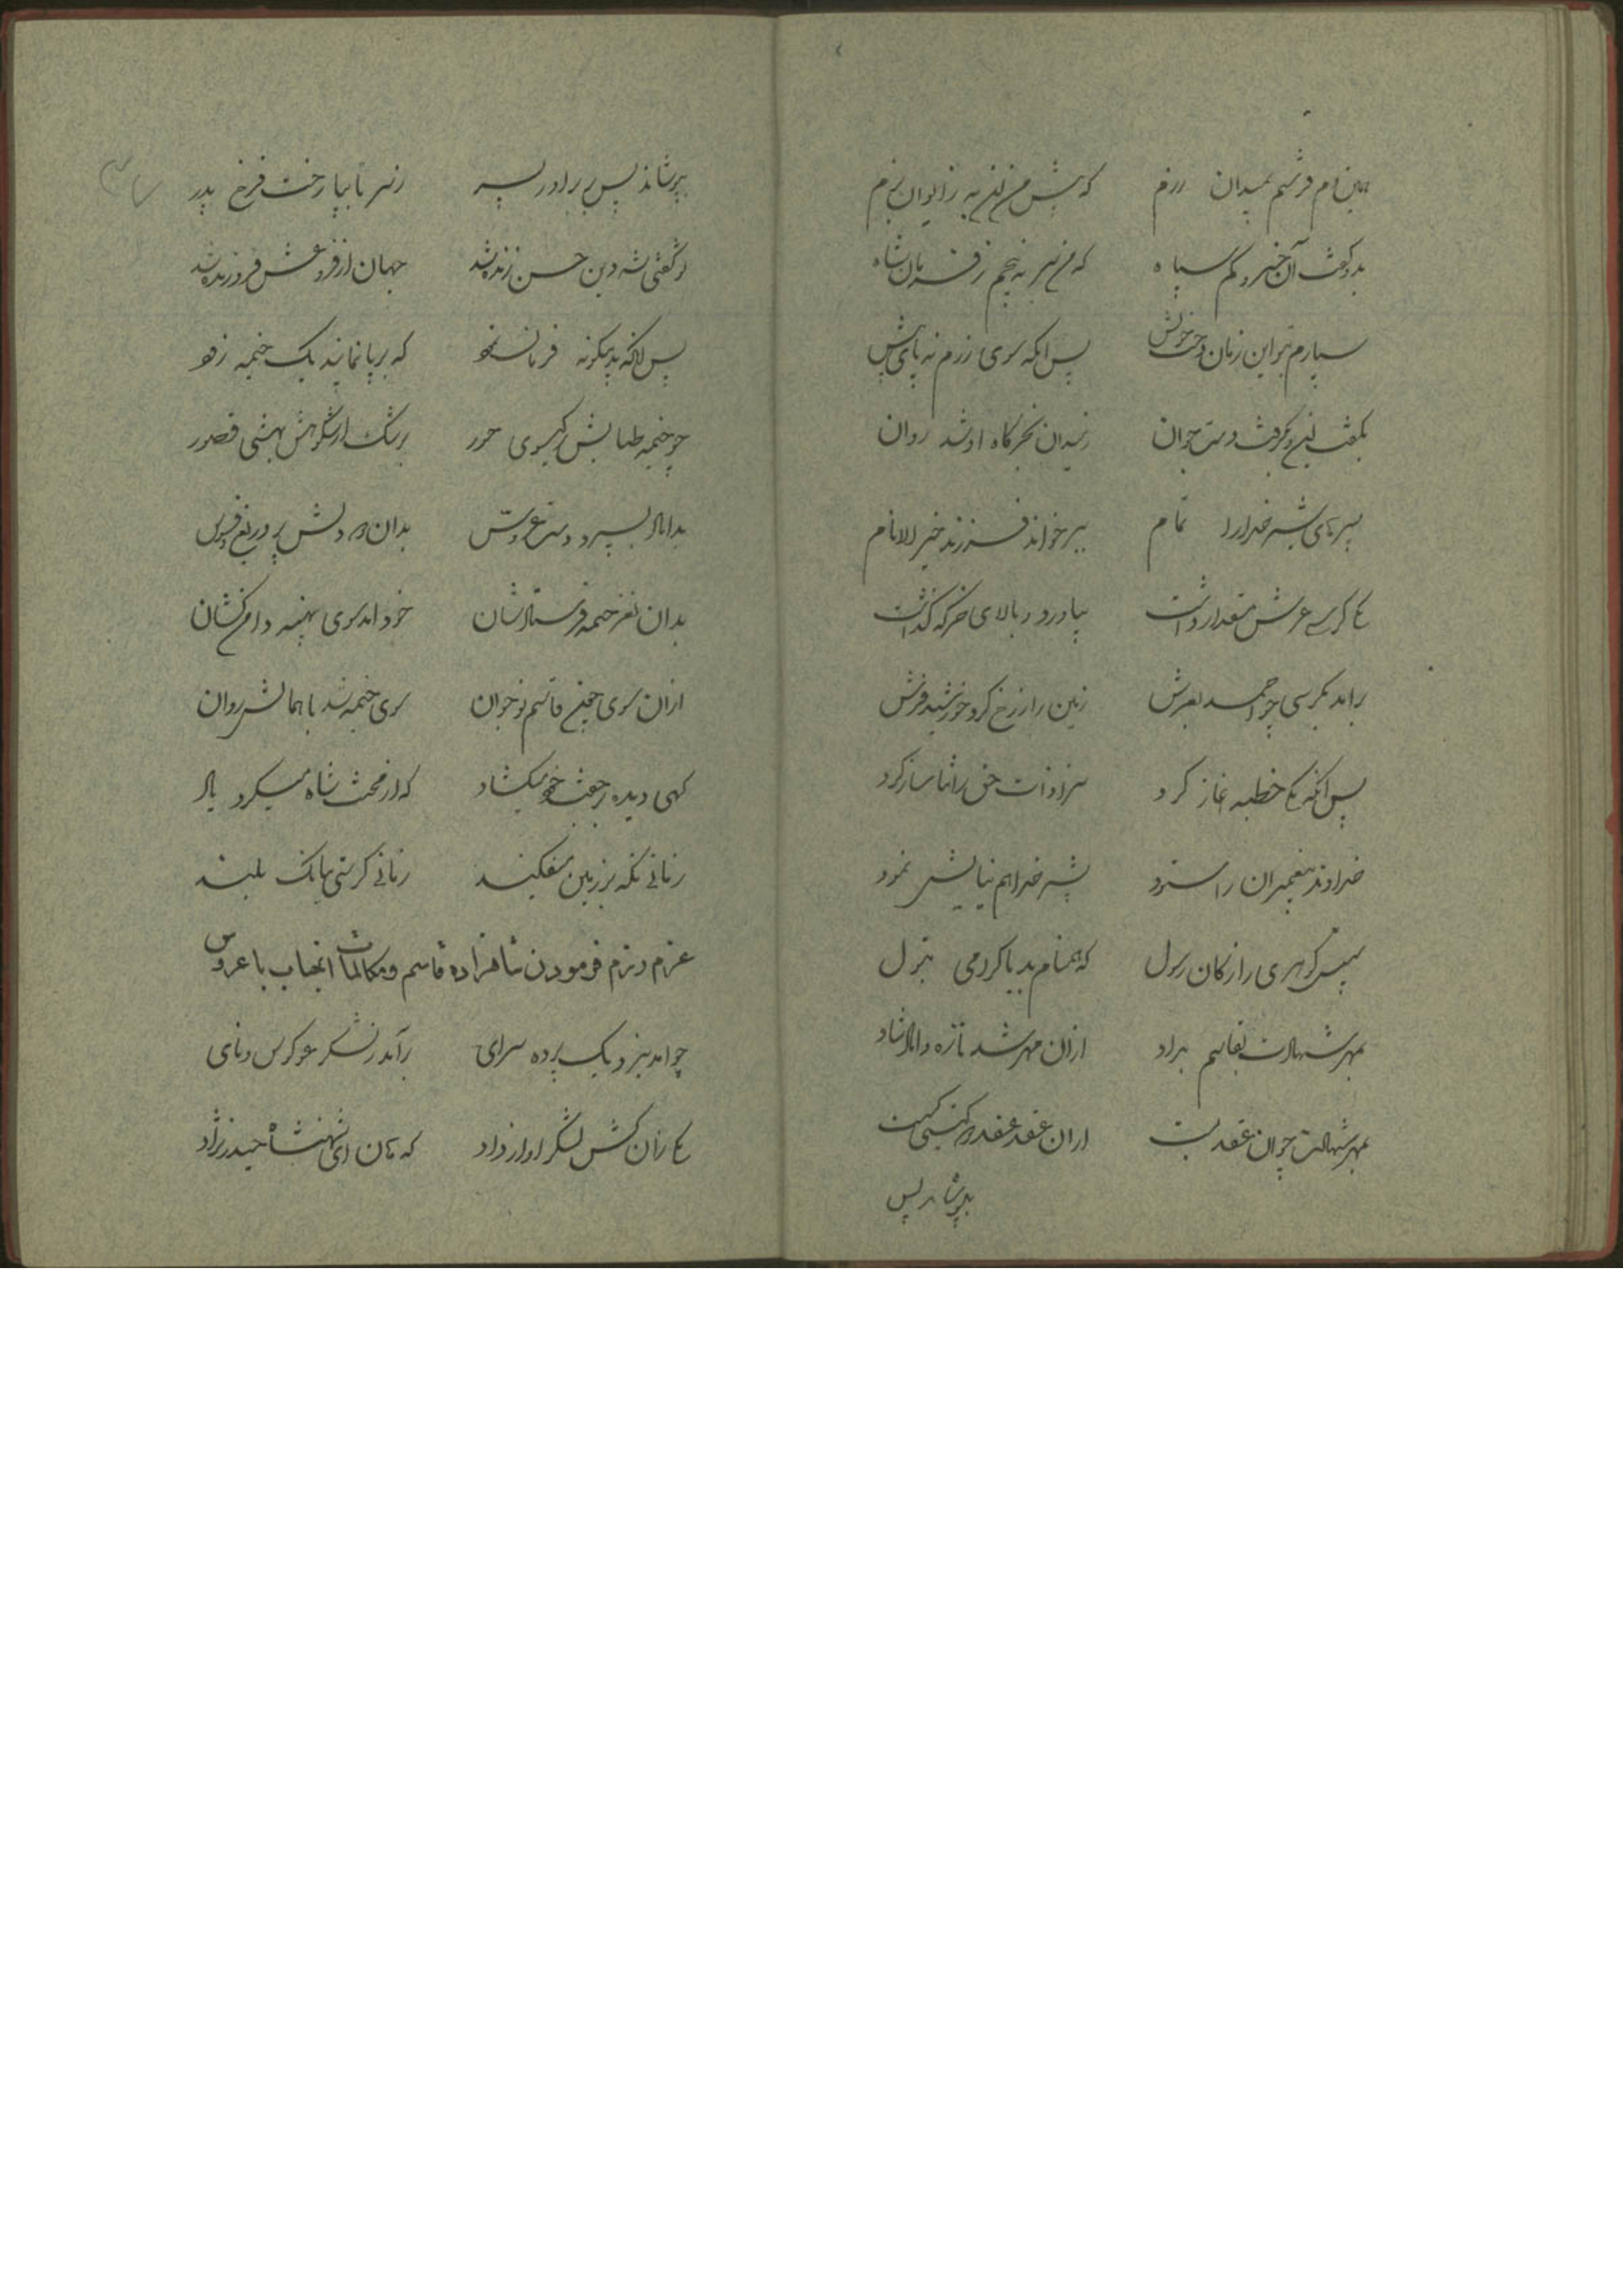 همین دم فرستم بمیدان رزم که پیش من این به ز ایوان بزم
بدو گفت آن خسرو کم سپاه که من سر نه پیچم ز فرمان شاه
سپارم بتو این زمان دخت خویش پس انگه سوی رزم نه پای پیش
بگفت این و بگرفت دست جوان ز میدان بخرگاه او شد روان
سر تا پای شیر خدا را تمام بر خواند فرزند خیر الانام
یکی کرسی عرش مقدار داشت بیاورد و بالای خرگه گذاشت
برامد بکرسی چو احمد بعرش زمین را ز رخ کرد خورشید فرش
پس انگه یکی خطبه اغاز کرد سزاو ذات حق را ثنا ساز کرد
خداوند پیغمبران را ستود بشیر خدا هم نیایش نمود
سپس گوهری را ز کان رسول که همنام بد با گرامی بتول
بمهر شهادت بقاسم بداد ازان مهر شد تازه داماد شاد
بمهر شهادت چو ان عقد بست ازان عقد عقد گیتی گست
بپوشاند پس
بپوشاند پس بر برادر پسر ز سر تا بپا رخت فرخ پدر
تو گفتی شه دین حسن زنده شد جهان از فروغش فروزنده شد
پس انگه بدینگونه فرمان که بر پا نمایند یک خیمه زود
چو خیمه طنابش ز گیسوی حور برشک از شکوهش بهشتی قصور
بداماد بسپرد دست عروس بدان در دلش پر دریغ و فسوس
بدان نغز خیمه فرستادشان خود امد سوی خیمه دامن کشان
ازان سوی جفت قاسم نوجوان سوی خیمه شد با همالش روان
گهی دیده بر جفت خود میگشاد گه از محنت شاه میکرد یاد
زمانی نگه بر زمین میفکند زمانی گرستی ببانگ بلند
عزم رزم فرمودن شاهزاده قاسم و مکالمات انجناب با عروس
چو امد بنزدیک پرده سرای برآمد ز لشکر غو کوس و نای
یکی زان کشن لشکر اواز داد که هان ای شهنشاه حیدر نژاد